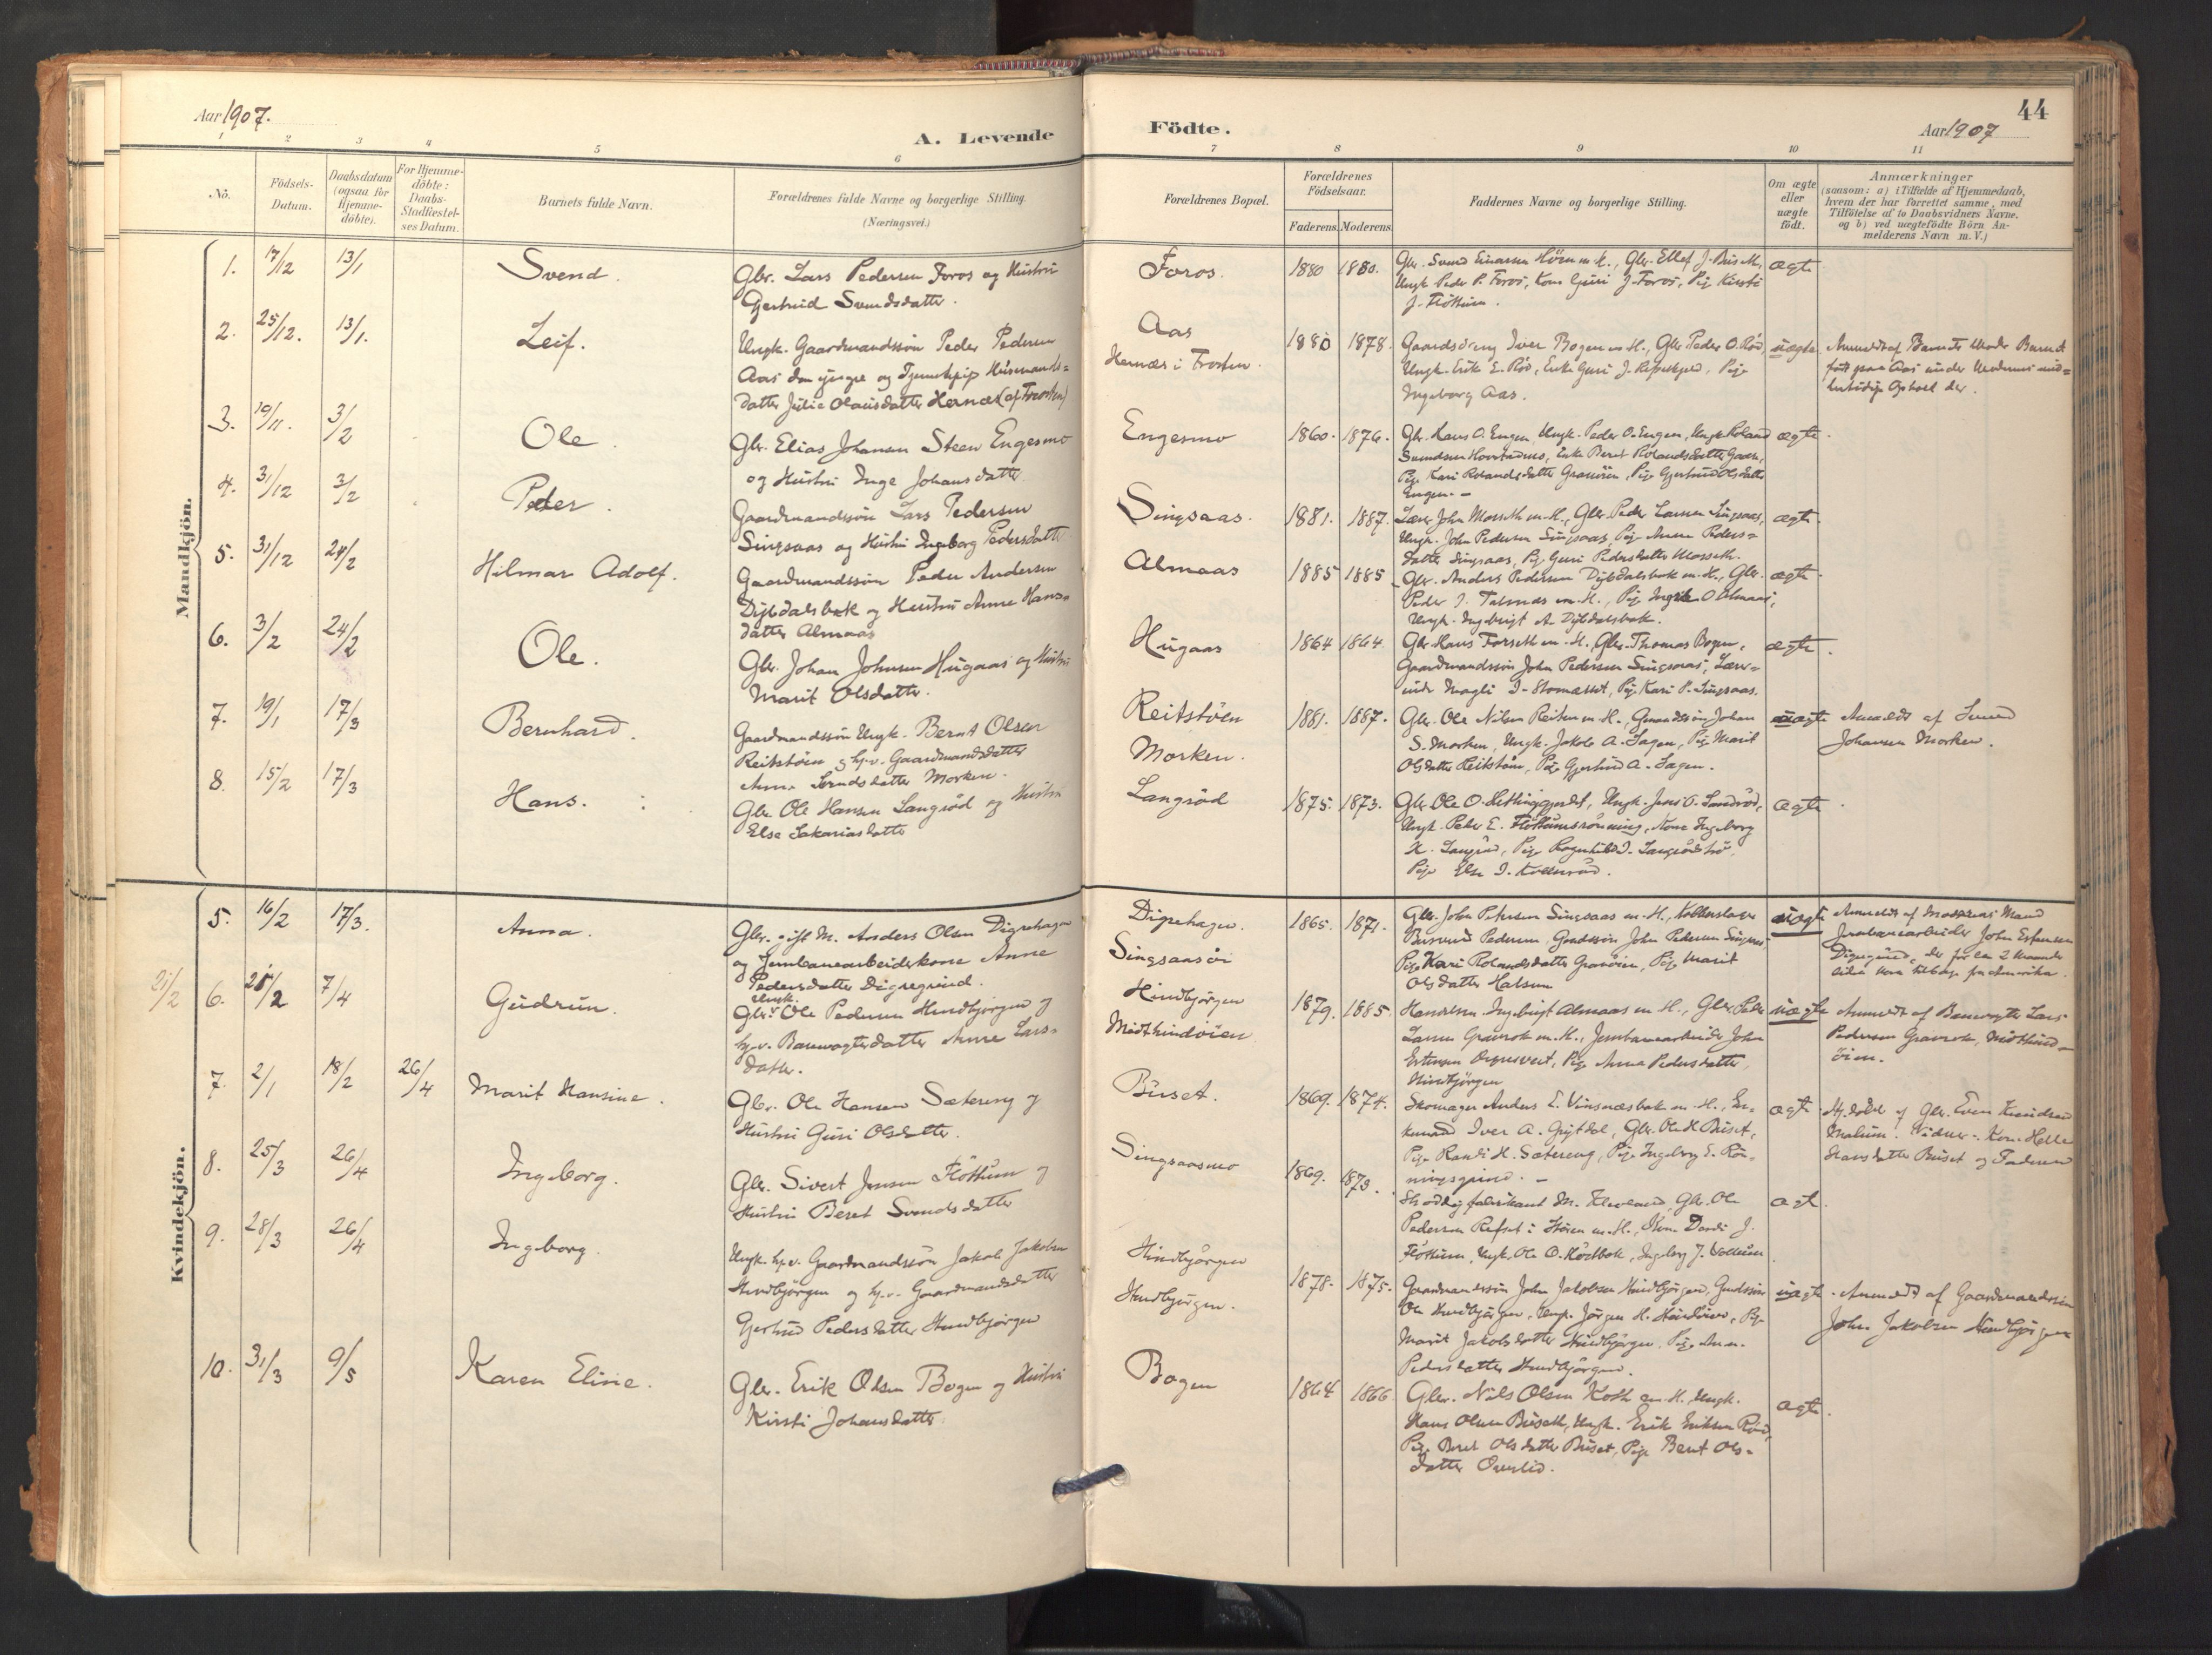 Aar 1907.
A. Levende
Födte.
Aar 1907
44
1 2 3 4 5 6 7 8 9 10 11
No.
Födsels-
Datum.
Daabsdatum
(ogsaa for
hjemme-
döbte).
For Hjemme-
döbte:
Daabs-
Stadfæstel-
ses Datum.
Barnets fulde Navn.
Forældrenes fulde Navne og borgerlige Stilling.
(Næringsvei.)
Forældrenes Bopæl.
Forældrenes
Födselsaar.
Faderens. Moderens.
Faddernes Navne og borgerlige Stilling.
Om ægte
eller
uægte
födt.
Anmærkninger
(saasom: a) i Tilfælde af Hjemmedaab,
hvem der har forrettet samme, med
Tilföielse af to Daabsvidners Navne,
og b) ved uægtefödte Börn An-
melderens Navn m. V.)
Mandkjön.
1. 17/12 13/1 Svend.
Gbr. Lars Pedersen Foros og Hustru
Gjertrud Svendsdatter.
Foros. 1880 1880.
Ungk. Peder P. Foros, Kone Guri J. Foros, Pige Kirsti
J. Flöttum.
ægte
2. 25/12. 13/1. Leif.
Ungk. Gaardmandssön Peder Pedersen
Aas den yngre og Tjenestepige Husmands-
datter Julie Olausdatter Hernæs (af Frosten)
Aas
Hernæs i Frosten.
1880 1878.
Gaardsdreng Iver Bogen m. H., Gbr. Peder O. Röd,
Ungk. Erik E. Röd, Enke Guri J. Pige
Ingeborg Aas.
uægte
Anmeldt af Barnets Moder Barnet
födt paa Aas under Moderens mid-
lertidige Ophold der.
3. 19/11. 3/2 Ole.
Gbr. Elias Johansen Steen Engesmo
og Hustru Inge Johansdatter.
Engesmo 1860. 1876.
Gbr. Hans O. Engen, Ungk. Peder O. Engen, Ungk. Roland
Svendsen Enke Beret Rolandsdatter
Pige Kari Rolandsdatter Granöien, Pige Gjertrud Olsdatter
Engen. –
ægte.
4. 31/12 3/2 Peder.
Gaardmandssön Lars Pedersen
Singsaas og Hustru Ingeborg Pedersdatter
Singsaas. 1881. 1887.
Lærer John Moseth m. H., Gbr. Peder Larsen Singsaas,
Ungk. John Pedersen Singsaas, Pige Anne Peders-
datter Singsaas, Pige Guri Pedersdatter Moseth.
ægte.
5. 31/12 24/2 Hilmar Adolf.
Gaardmandssön Peder Andersen
Dybdalsbak og Hustru Anne Hans-
datter Almaas
Almaas 1885 1885
Gbr. Anders Pedersen Dybdalsbak m. H., Gbr.
Peder J. Talsnæs m. H., Pige Ingrid O. Almaas,
Ungk. Ingebrigt A. Dybdalsbak.
ægte.
6. 3/2 24/2 Ole.
Gbr. Johan Johnsen Hugaas og Hustru
Marit Olsdatter.
Hugaas 1864 1864
Gbr. Hans Forseth m. H., Gbr. Thomas Bogen,
Gaardmandssön John Pedersen Singsaas, Lærer-
inde Magli J. Pige Kari P. Singsaas.
ægte.
7. 19/1 17/3 Bernhard.
Gaardmandssön Ungk. Bernt Olsen
Reitstöen og hv. Gaardmandsdatter
Anne Svendsdatter Morken.
Reitstöen
Morken.
1881. 1887.
Gbr. Ole Nilsen Reiten m. H., Johan
S. Morken, Ungk. Jakob A. Sagen, Pige Marit
Olsdatter Reitstöen, Pige Gjertrud A. Sagen.
uægte
Anmeldt af Svend
Johansen Morken.
8. 15/2 17/3 Hans.
Gbr. Ole Hansen Langröd og Hustru
Else Sakariasdatter
Langröd 1875. 1873.
Ungk. Peder E. Flöttumsrönning, Kone Ingeborg
H. Pige Ragnhild
Pige Else J.
ægte.
Kvindekjön.
5. 16/2 17/3. Anna.
Gbr. gift M. Anders Olsen Digrehagen
og Jernbanearbeiderkone Anne
Pedersdatter Digregrind.
Digrehagen.
Singsaasöi
1865. 1871.
Gbr. John Petersen Singsaas m. H.,
Pedersen, John Pedersen Singsaas
Pige Kari Rolandsdatter Granöien, Pige Marit
Olsdatter
uægte
Anmeldt af Moderens Mand
Jernbanearbeider John Estensen
Digregrind, der for ca 2 Maaneder
siden kom tilbage fra Amerika.
21/2 6. 21/2 7/4 Gudrun.
Ungk.
Gbr. Ole Pedersen Hindbjörgen og
hv. Banevogterdatter Anne Lars-
datter.
Hindbjörgen
Midthindöien
1879. 1885.
Ingebrigt Almaas m. H., Gbr. Peder
Larsen m. H., Jernbanearbeider John
Estensen Pige Anne Pedersdatter
Hindbjörgen
uægte
Anmeldt af Banevogter Lars
Pedersen Midthind-
öien.
7. 2/1 18/2 26/4 Marit Hansine.
Gbr. Ole Hansen Sætereng og
Hustru Guri Olsdatter.
Buset. 1869. 1874.
Skomager Anders E. Vinsnesbak m. H., En-
kemand Iver A. Gbr. Ole H. Buset,
Pige Randi H. Sætereng, Pige Ingeborg E. Rön-
ningsgrind. –
ægte.
Hj. döbt af Gbr. Even
Vidner: Kone
Hansdatter Buset og Faderen
8. 25/3 26/4 Ingeborg.
Gbr. Sivert Jensen Flöttum og
Hustru Beret Svendsdatter
Singsaasmo 1869. 1873.
M. Gbr. Ole
Pedersen i Hören m. H., Kone J.
Flöttum, Ungk. Ole O. Ingeborg J.
ægt.
9. 28/3 26/4 Ingeborg.
Ungk. hv. Gaardmandssön Jakob Jakobsen
Hindbjörgen og hv. Gaardmandsdatter
Gjertrud Pedersdatter Hindbjörgen
Hindbjörgen
Hindbjörgen.
1878. 1875.
Gaardmandssön John Jakobsen Hindbjörgen,
Ole Hindbjörgen, Ungk. Jörgen H. Pige
Marit Jakobsdatter Hindbjörgen, Pige Anne
Pedersdatter Hindbjörgen.
uægte.
Anmeldt af Gaardmandssön
John Jakobsen Hindbjörgen
10. 31/3 9/5 Karen Eline.
Gbr. Erik Olsen Bogen og Hustru
Kirsti Johansdatter.
Bogen 1864 1866.
Gbr. Nils Olsen Koth m. H., Ungk.
Hans Olsen Buseth, Ungk. Erik Eriksen Röd,
Pige Beret Olsdatter Buset, Pige Beret Ols-
datter
ægte.